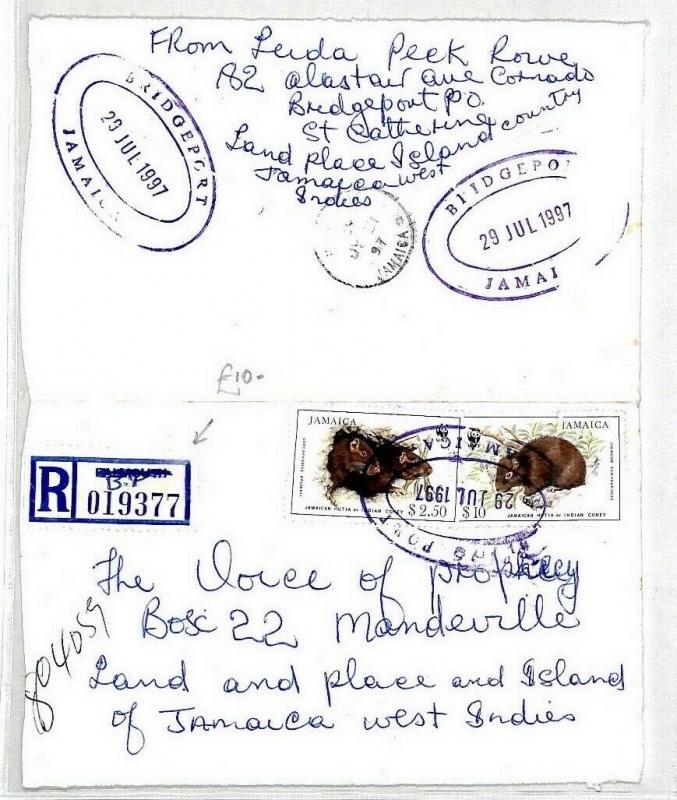 FRom Leida Peek Rowe
182 alastair ave Corrado
Bridgeport P.O.
St Catherine country
Land place Island
Jamaica west
Indies
BRIDGEPORT
29 JUL 1997
JAMAICA
BRIDGEPO
29 JUL 1997
JAMAI
97
JAMAICA
£10-
R
B.P
019377
JAMAICA
$2.50
JAMAICAN HUTIA or INDIAN CONEY
JAMAICA
$10
JAMAICAN HUTIA or INDIAN CONEY
JAMAICA
29 JUL 1997
The Voice of prophecy
Box 22 Mandeville
Land and place and Island
of JAMAICA west Indies
804059